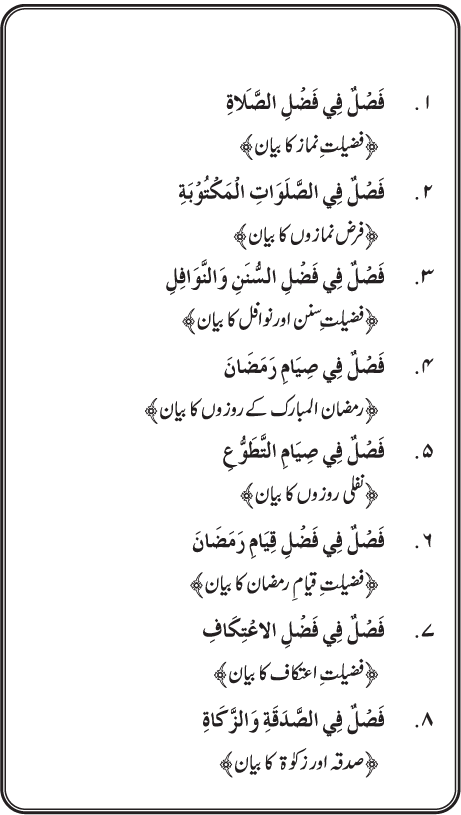 ۱. فَصْلٌ فِي فَضْلِ الصَّلَاةِ
﴿فضیلتِ نماز کا بیان﴾
۲. فَصْلٌ فِي الصَّلَوَاتِ الْمَكْتُوْبَةِ
﴿فرض نمازوں کا بیان﴾
۳. فَصْلٌ فِي فَضْلِ السُّنَنِ وَالنَّوَافِلِ
﴿فضیلتِ سنن اور نوافل کا بیان﴾
۴. فَصْلٌ فِي صِيَامِ رَمَضَانَ
﴿رمضان المبارک کے روزوں کا بیان﴾
۵. فَصْلٌ فِي صِيَامِ التَّطَوُّعِ
﴿نفلی روزوں کا بیان﴾
۶. فَصْلٌ فِي فَضْلِ قِيَامِ رَمَضَانَ
﴿فضیلتِ قیامِ رمضان کا بیان﴾
۷. فَصْلٌ فِي فَضْلِ الاعْتِكَافِ
﴿فضیلتِ اعتکاف کا بیان﴾
۸. فَصْلٌ فِي الصَّدَقَةِ وَالزَّكَاةِ
﴿صدقہ اور زکوٰۃ کا بیان﴾